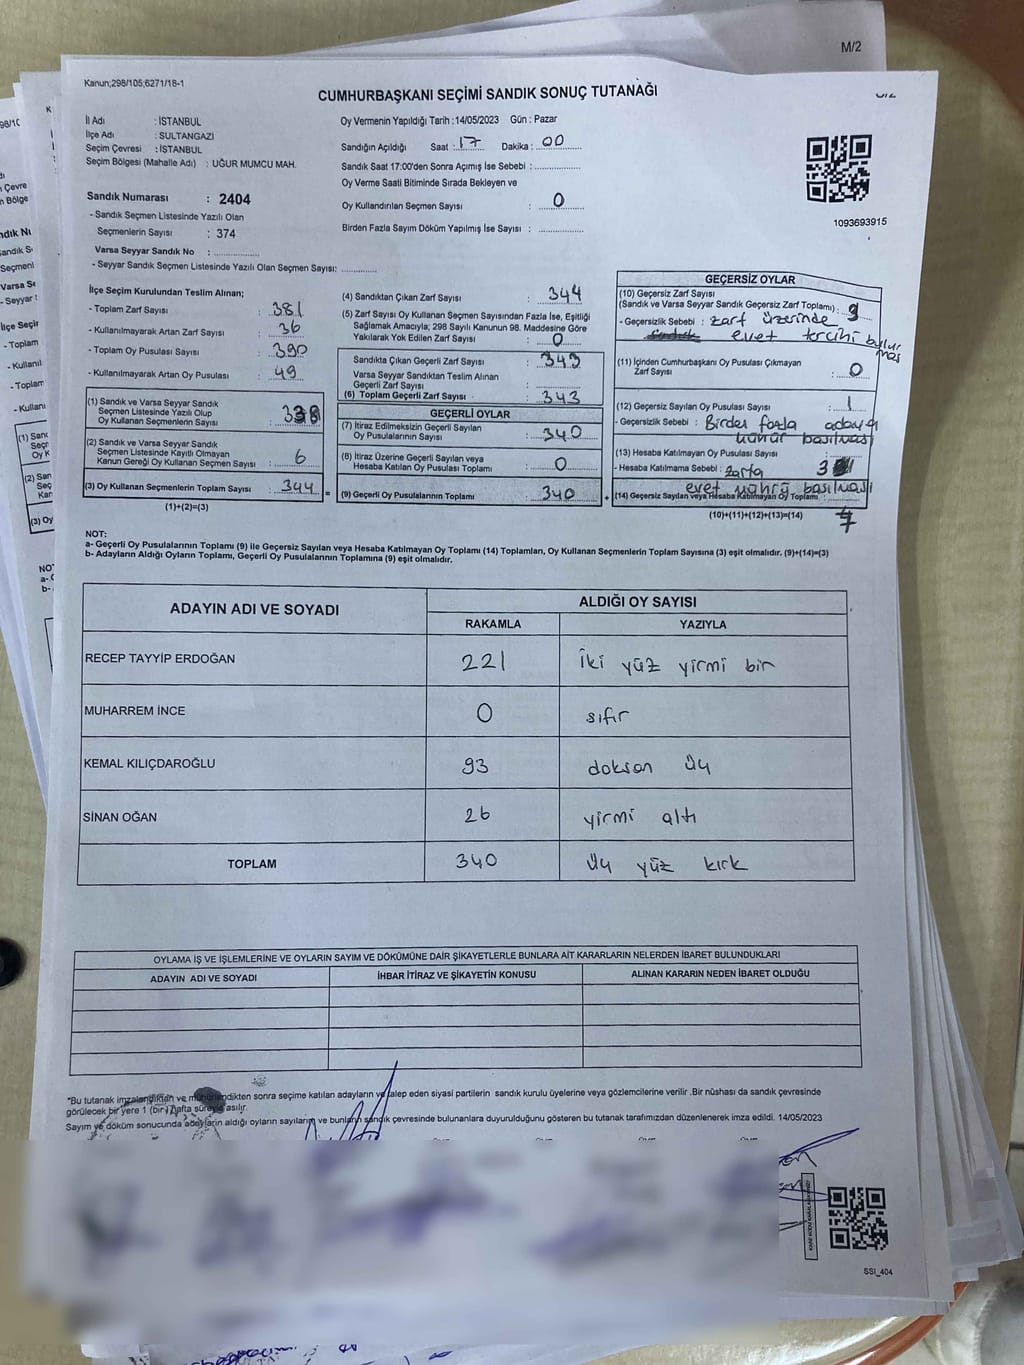 M/2
Kanun;298/105;6271/18-1
CUMHURBAŞKANI SEÇİMİ SANDIK SONUÇ TUTANAĞI
İl Adı : İSTANBUL
İlçe Adı : SULTANGAZİ
Seçim Çevresi : İSTANBUL
Seçim Bölgesi (Mahalle Adı) : UĞUR MUMCU MAH.
Sandık Numarası : 2404
- Sandık Seçmen Listesinde Yazılı Olan
Seçmenlerin Sayısı : 374
Varsa Seyyar Sandık No :
- Seyyar Sandık Seçmen Listesinde Yazılı Olan Seçmen Sayısı:
Oy Vermenin Yapıldığı Tarih :14/05/2023 Gün : Pazar
Sandığın Açıldığı Saat : 17 Dakika : 00
Sandık Saat 17:00'den Sonra Açımış İse Sebebi :
Oy Verme Saati Bitiminde Sırada Bekleyen ve
Oy Kullandırılan Seçmen Sayısı : 0
Birden Fazla Sayım Döküm Yapılmış İse Sayısı :
1093693915
İlçe Seçim Kurulundan Teslim Alınan;
- Toplam Zarf Sayısı : 381
- Kullanılmayarak Artan Zarf Sayısı : 36
- Toplam Oy Pusulası Sayısı : 390
- Kullanılmayarak Artan Oy Pusulası : 49
(1) Sandık ve Varsa Seyyar Sandık
Seçmen Listesinde Yazılı Olup
Oy Kullanan Seçmenlerin Sayısı : 338
(2) Sandık ve Varsa Seyyar Sandık
Seçmen Listesinde Kayıtlı Olmayan
Kanun Gereği Oy Kullanan Seçmen Sayısı : 6
(3) Oy Kullanan Seçmenlerin Toplam Sayısı : 344
(1)+(2)=(3)
(4) Sandıktan Çıkan Zarf Sayısı : 344
(5) Zarf Sayısı Oy Kullanan Seçmen Sayısından Fazla İse, Eşitliği
Sağlamak Amacıyla; 298 Sayılı Kanunun 98. Maddesine Göre
Yakılarak Yok Edilen Zarf Sayısı : 0
Sandıkta Çıkan Geçerli Zarf Sayısı : 343
Varsa Seyyar Sandıktan Teslim Alınan
Geçerli Zarf Sayısı :
(6) Toplam Geçerli Zarf Sayısı : 343
GEÇERLİ OYLAR
(7) İtiraz Edilmeksizin Geçerli Sayılan
Oy Pusulalarının Sayısı : 340
(8) İtiraz Üzerine Geçerli Sayılan veya
Hesaba Katılan Oy Pusulası Toplamı : 0
(9) Geçerli Oy Pusulalarının Toplamı : 340
GEÇERSİZ OYLAR
(10) Geçersiz Zarf Sayısı
(Sandık ve Varsa Seyyar Sandık Geçersiz Zarf Toplamı) :
- Geçersizlik Sebebi : zarf üzerinde
evet tercihi
(11) İçinden Cumhurbaşkanı Oy Pusulası Çıkmayan
Zarf Sayısı : 0
(12) Geçersiz Sayılan Oy Pusulası Sayısı : 1
- Geçersizlik Sebebi : Birden fazla adaya
mühür basılması
(13) Hesaba Katılmayan Oy Pusulası Sayısı
- Hesaba Katılmama Sebebi : zarfa 3
evet mührü basılması
(14) Geçersiz Sayılan veya Hesaba Katılmayan Oy Toplamı :
(10)+(11)+(12)+(13)=(14)
NOT:
a- Geçerli Oy Pusulalarının Toplamı (9) ile Geçersiz Sayılan veya Hesaba Katılmayan Oy Toplamı (14) Toplamları, Oy Kullanan Seçmenlerin Toplam Sayısına (3) eşit olmalıdır. (9)+(14)=(3)
b- Adayların Aldığı Oyların Toplamı, Geçerli Oy Pusulalarının Toplamına (9) eşit olmalıdır.
ADAYIN ADI VE SOYADI ALDIĞI OY SAYISI
RAKAMLA YAZIYLA
RECEP TAYYİP ERDOĞAN 221 iki yüz yirmi bir
MUHARREM İNCE 0 sıfır
KEMAL KILIÇDAROĞLU 93 doksan üç
SİNAN OĞAN 26 yirmi altı
TOPLAM 340 üç yüz kırk
OYLAMA İŞ VE İŞLEMLERİNE VE OYLARIN SAYIM VE DÖKÜMÜNE DAİR ŞİKAYETLERLE BUNLARA AİT KARARLARIN NELERDEN İBARET BULUNDUKLARI
ADAYIN ADI VE SOYADI İHBAR İTİRAZ VE ŞİKAYETİN KONUSU ALINAN KARARIN NEDEN İBARET OLDUĞU
"Bu tutanak imzalandıktan ve mühürlendikten sonra seçime katılan adayların ve talep eden siyasi partilerin sandık kurulu üyelerine veya gözlemcilerine verilir .Bir nüshası da sandık çevresinde
görülecek bir yere 1 (bir) hafta süreyle asılır.
Sayım ve döküm sonucunda adayların aldığı oyların sayıların ve bunların sandık çevresinde bulunanlara duyurulduğunu gösteren bu tutanak tarafımızdan düzenlenerek imza edildi. 14/05/2023
SSI_404